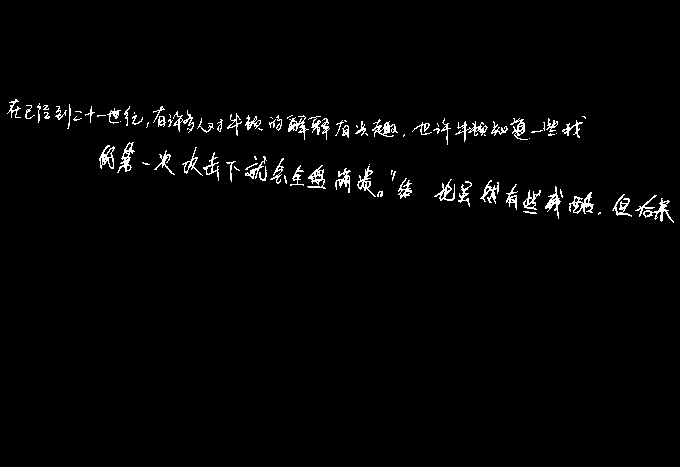 在已经到二十一世纪,有许多人对牛顿的解释有兴趣.也许牛顿知道一些我
的第一次攻击下就会全盘崩溃。"结 也虽然有些残酷.但后果